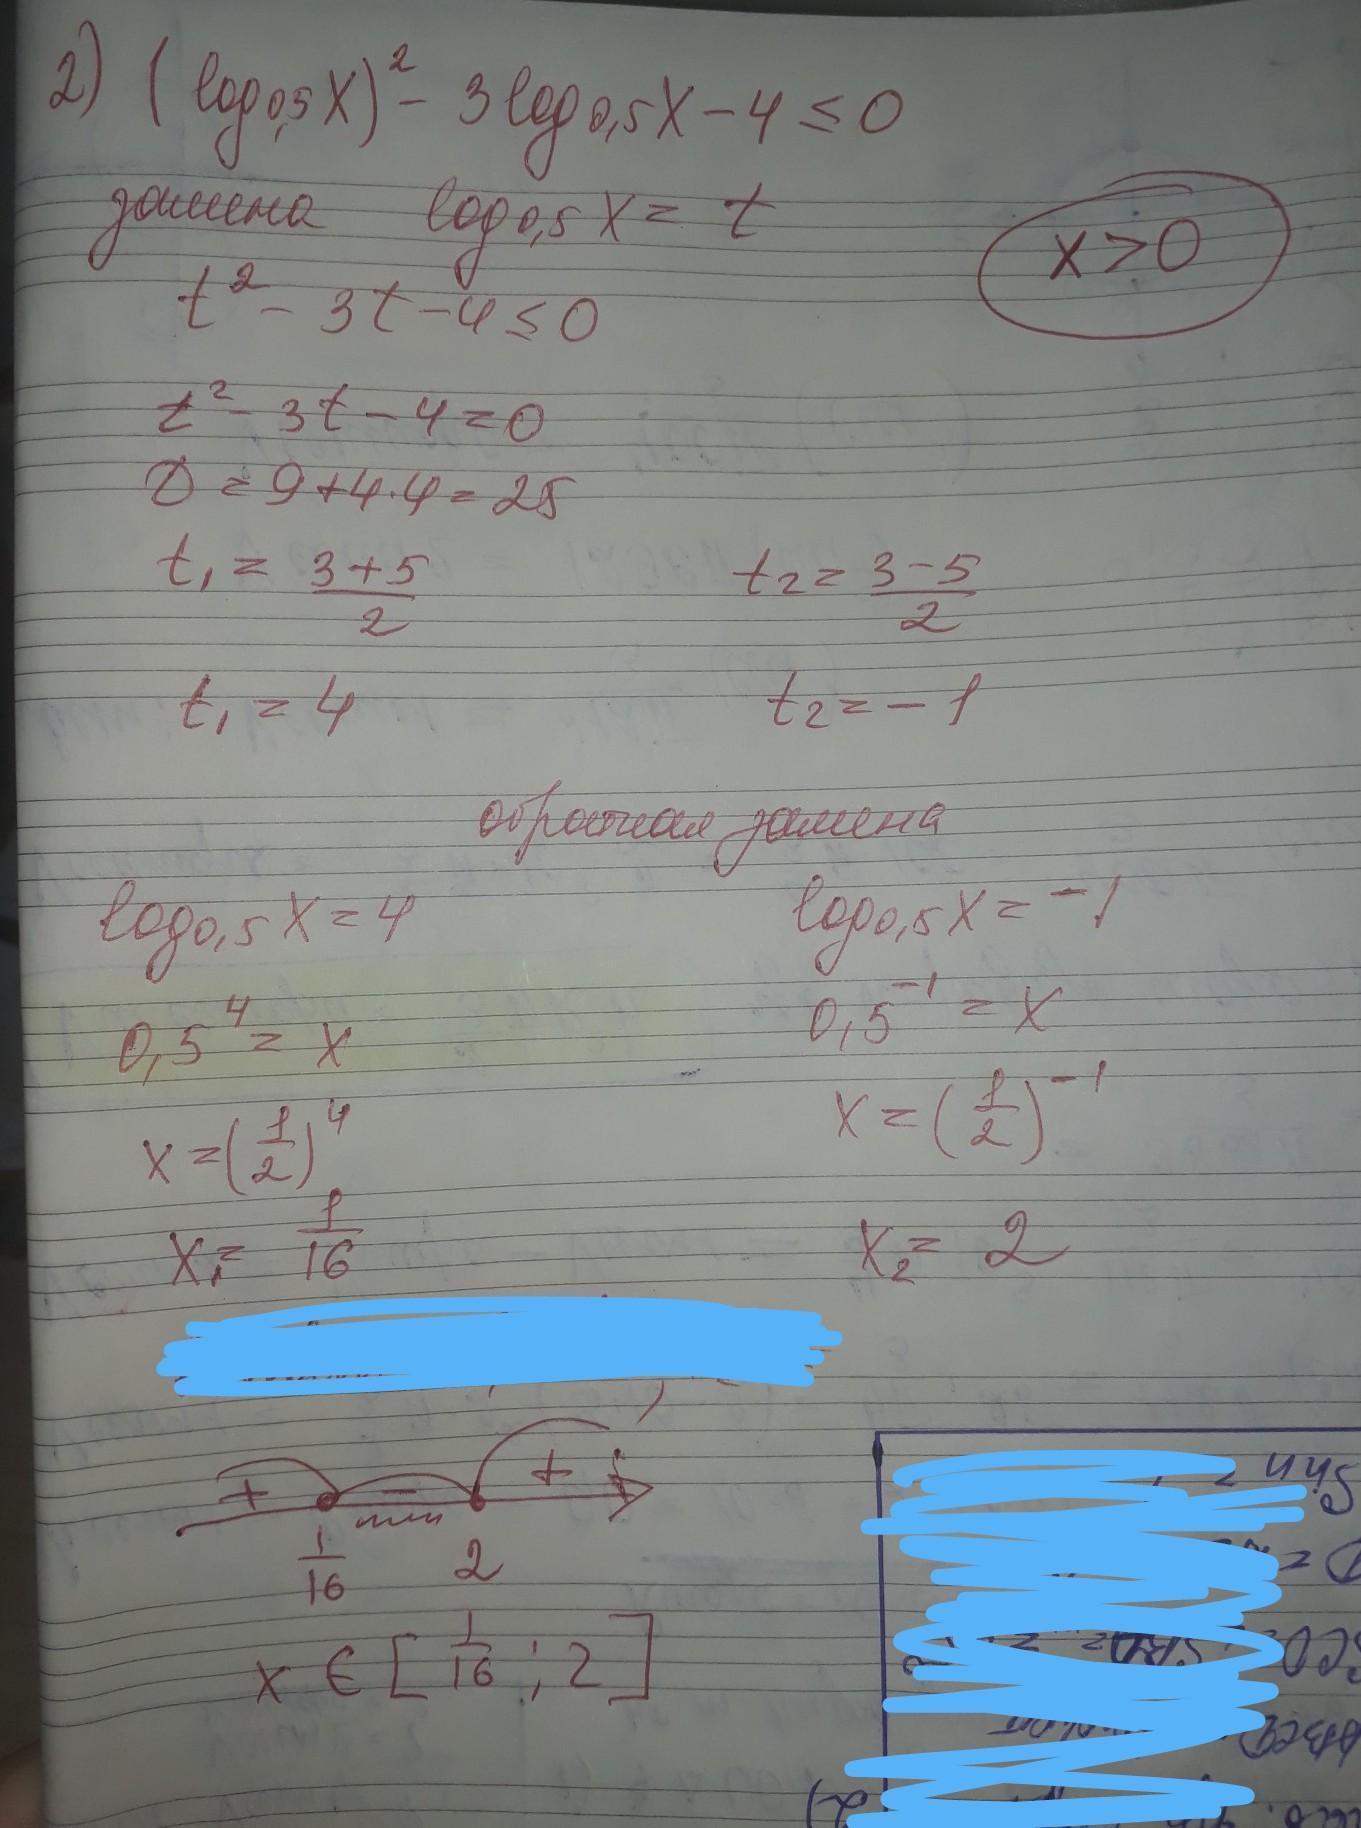 2) (log₀,₅X)² - 3log₀,₅X - 4 ≤ 0
замена log₀,₅X = t
x > 0
t² - 3t - 4 ≤ 0
t² - 3t - 4 = 0
D = 9 + 4·4 = 25
t₁ = (3+5)/2 t₂ = (3-5)/2
t₁ = 4 t₂ = -1
обратная замена
log₀,₅X = 4 log₀,₅X = -1
0,5⁴ = X 0,5⁻¹ = X
X = (1/2)⁴ X = (1/2)⁻¹
X₁ = 1/16 X₂ = 2
+ - +
1/16 2
x ∈ [1/16 ; 2]